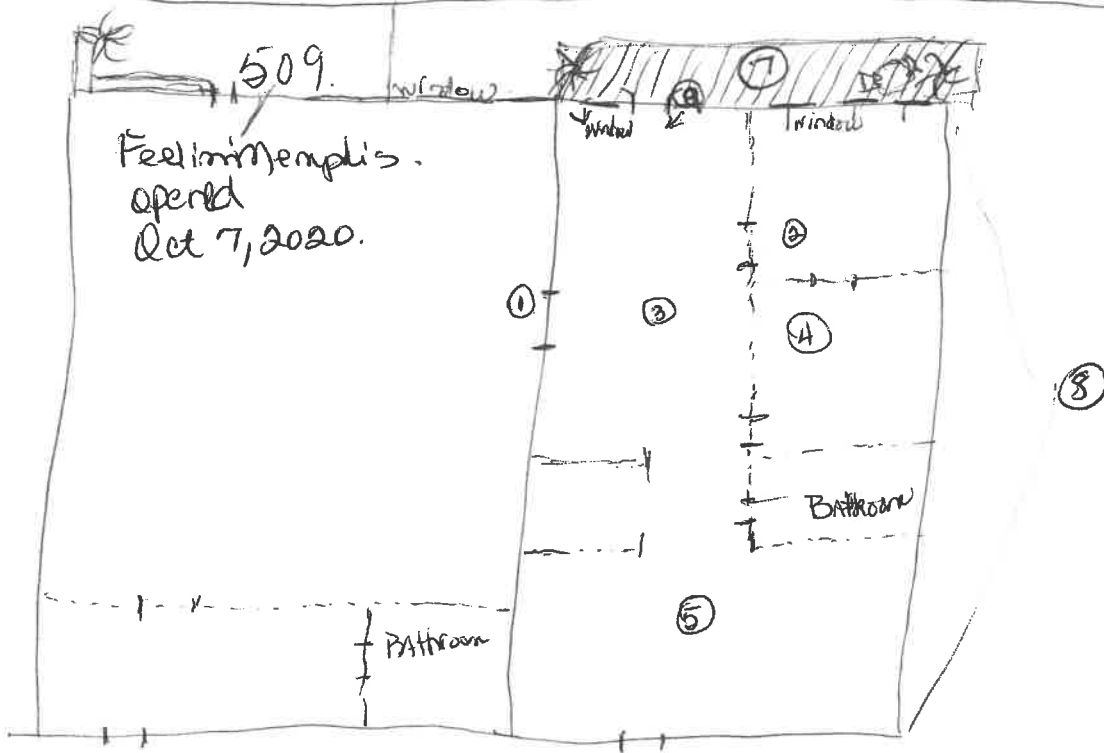 509.
window
Feelin'Memphis.
opened
Oct 7, 2020.
⑦
window
⑨
window
②
①
③
④
⑧
Bathroom
⑤
Bathroom